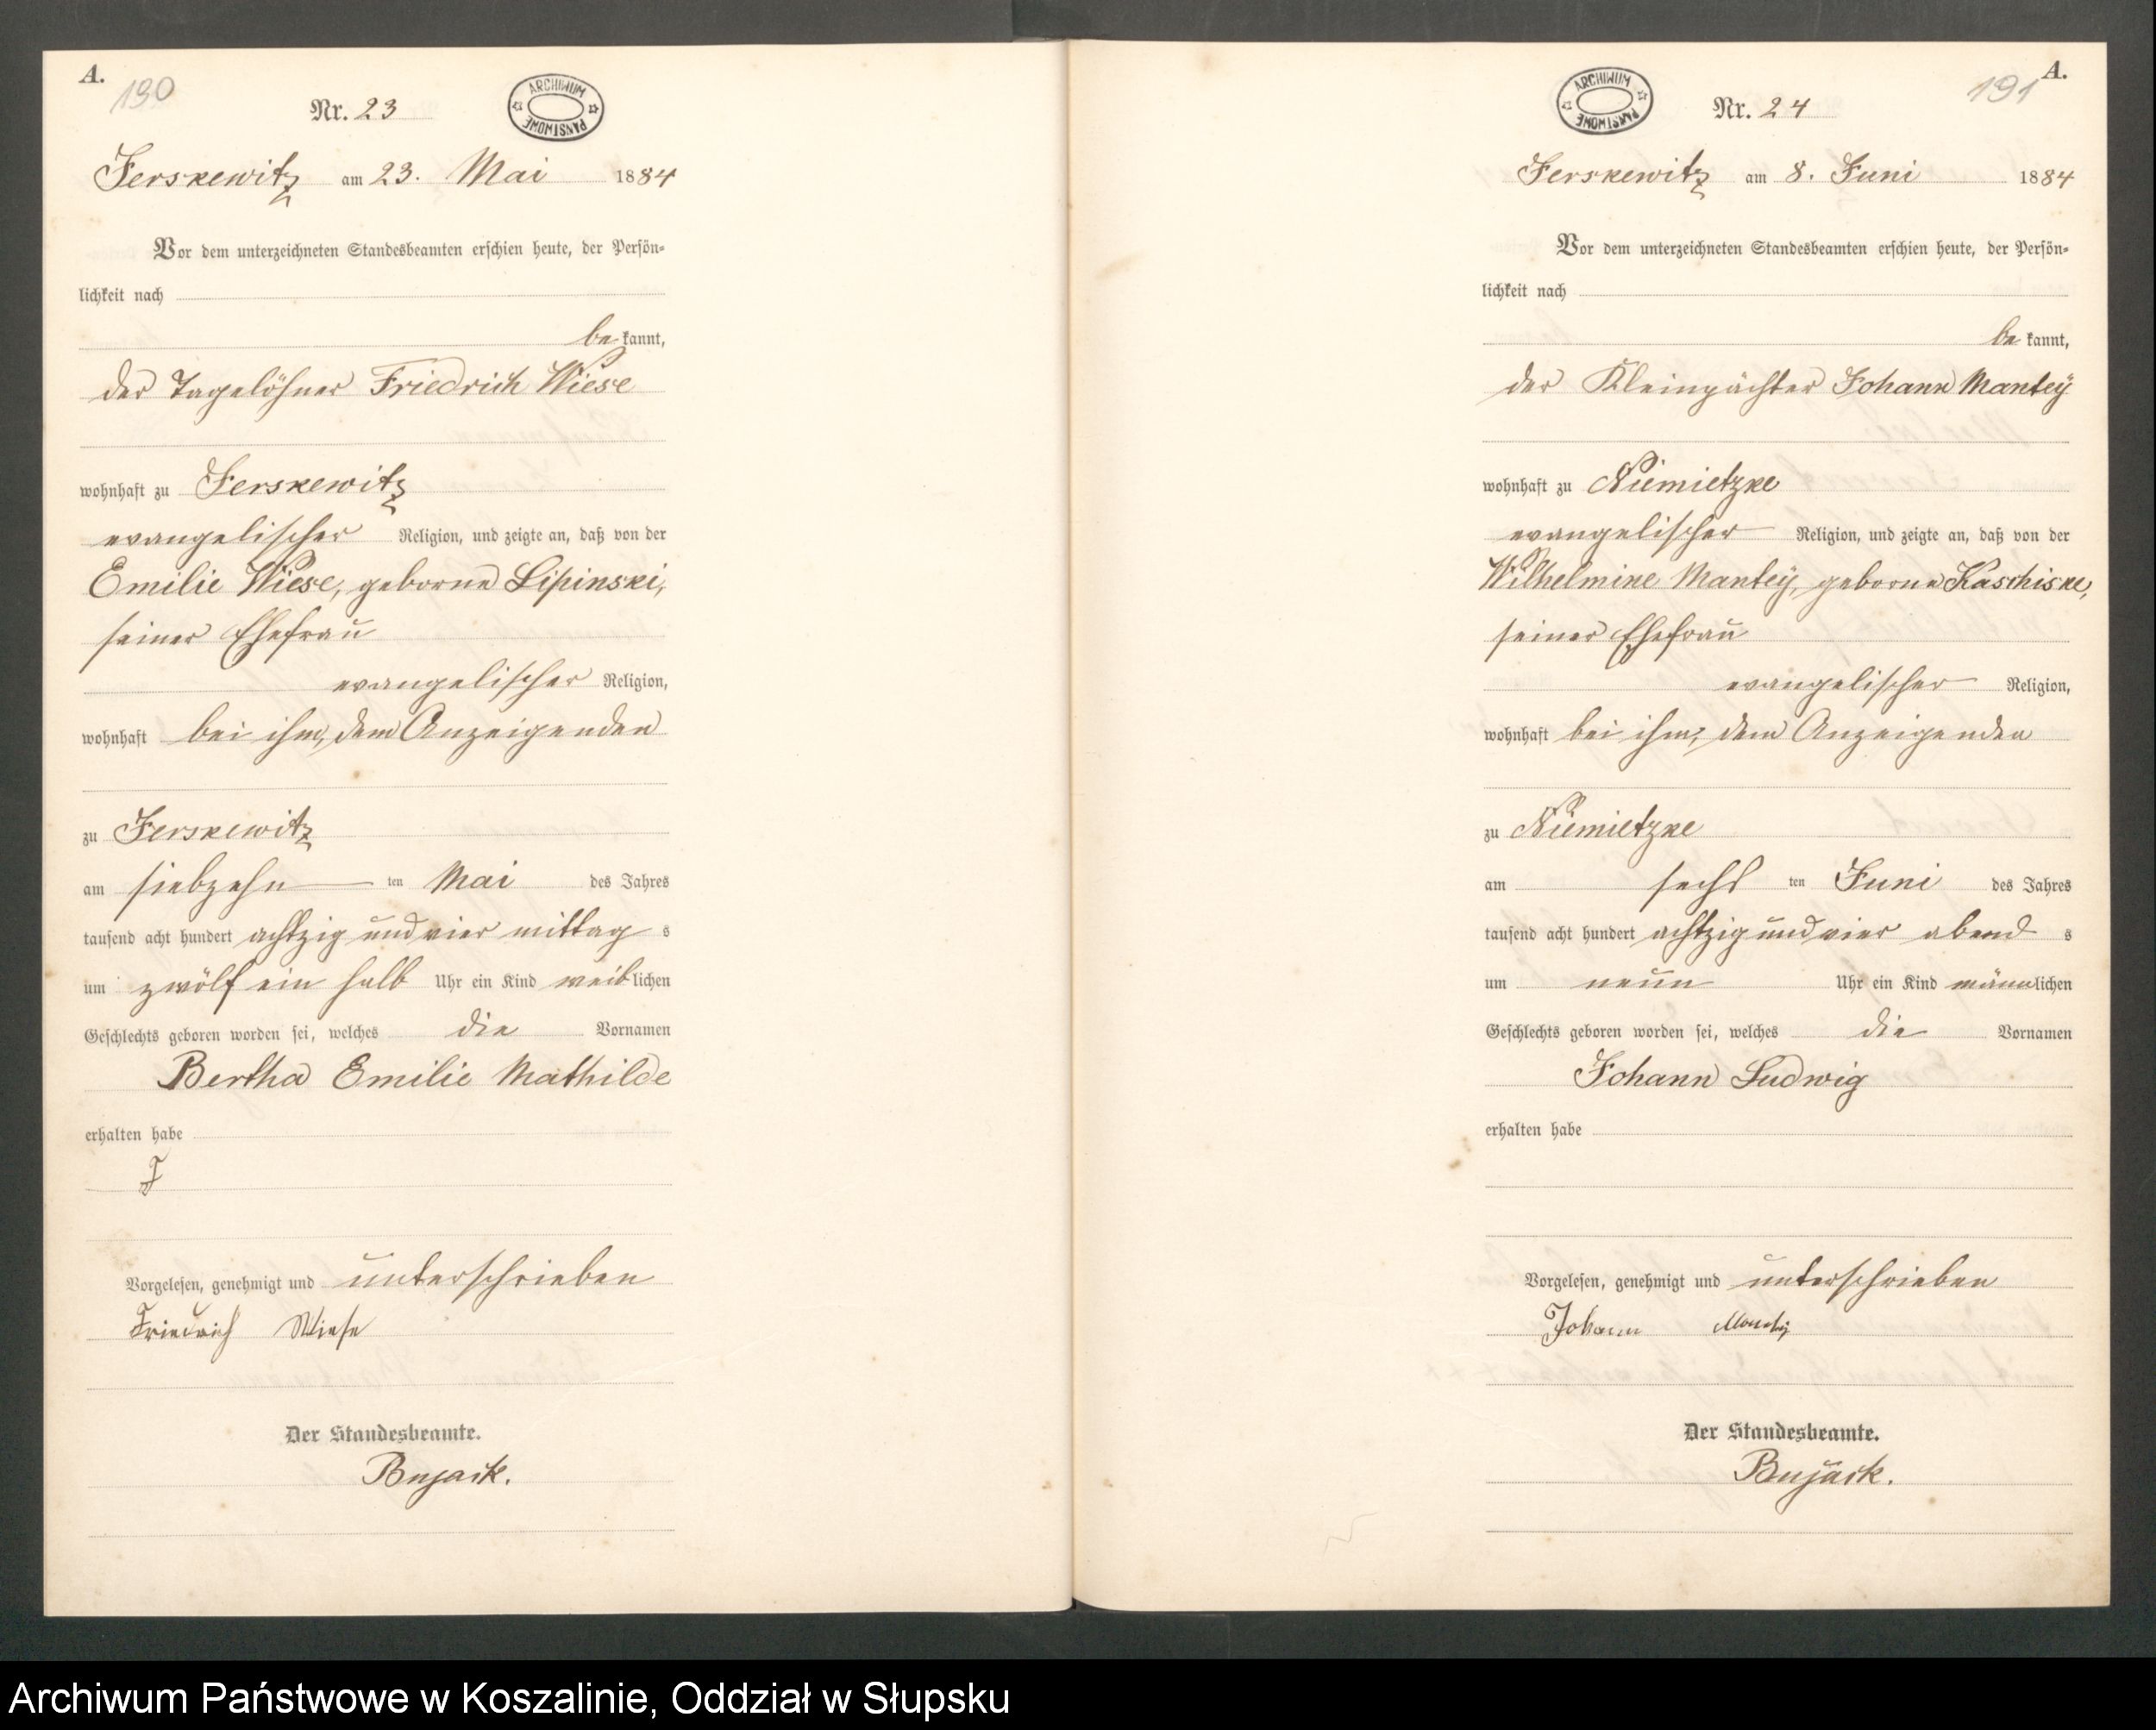 A.
190
Nr. 23
ARCHIWUM PAŃSTWOWE
Jerskewitz am 23. Mai 1884
Vor dem unterzeichneten Standesbeamten erschien heute, der Persön-
lichkeit nach
be kannt,
der Tagelöhner Friedrich Wiese
wohnhaft zu Jerskewitz
evangelischer Religion, und zeigte an, daß von der
Emilie Wiese, geborne Lipinski,
seiner Ehefrau
evangelischer Religion,
wohnhaft bei ihm, dem Anzeigenden
zu Jerskewitz
am siebzehn ten Mai des Jahres
tausend acht hundert achtzig und vier mittag s
um zwölf ein halb Uhr ein Kind weib lichen
Geschlechts geboren worden sei, welches die Vornamen
Bertha Emilie Mathilde
erhalten habe
Vorgelesen, genehmigt und unterschrieben
Friedrich Wiese
Der Standesbeamte.
Bujack.
A.
191
Nr. 24
ARCHIWUM PAŃSTWOWE
Jerskewitz am 8. Juni 1884
Vor dem unterzeichneten Standesbeamten erschien heute, der Persön-
lichkeit nach
be kannt,
der Kleinpächter Johann Mantey
wohnhaft zu Niemietzke
evangelischer Religion, und zeigte an, daß von der
Wilhelmine Mantey, geborne Kaschiske,
seiner Ehefrau
evangelischer Religion,
wohnhaft bei ihm, dem Anzeigenden
zu Niemietzke
am sechs ten Juni des Jahres
tausend acht hundert achtzig und vier abend s
um neun Uhr ein Kind männlichen
Geschlechts geboren worden sei, welches die Vornamen
Johann Ludwig
erhalten habe
Vorgelesen, genehmigt und unterschrieben
Johann Mantey
Der Standesbeamte.
Bujack.
Archiwum Państwowe w Koszalinie, Oddział w Słupsku